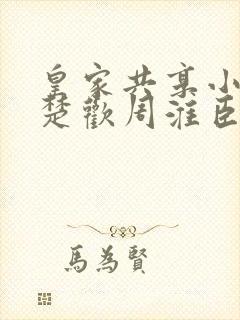 皇家共享小
楚歡周淮臣
馬為賢